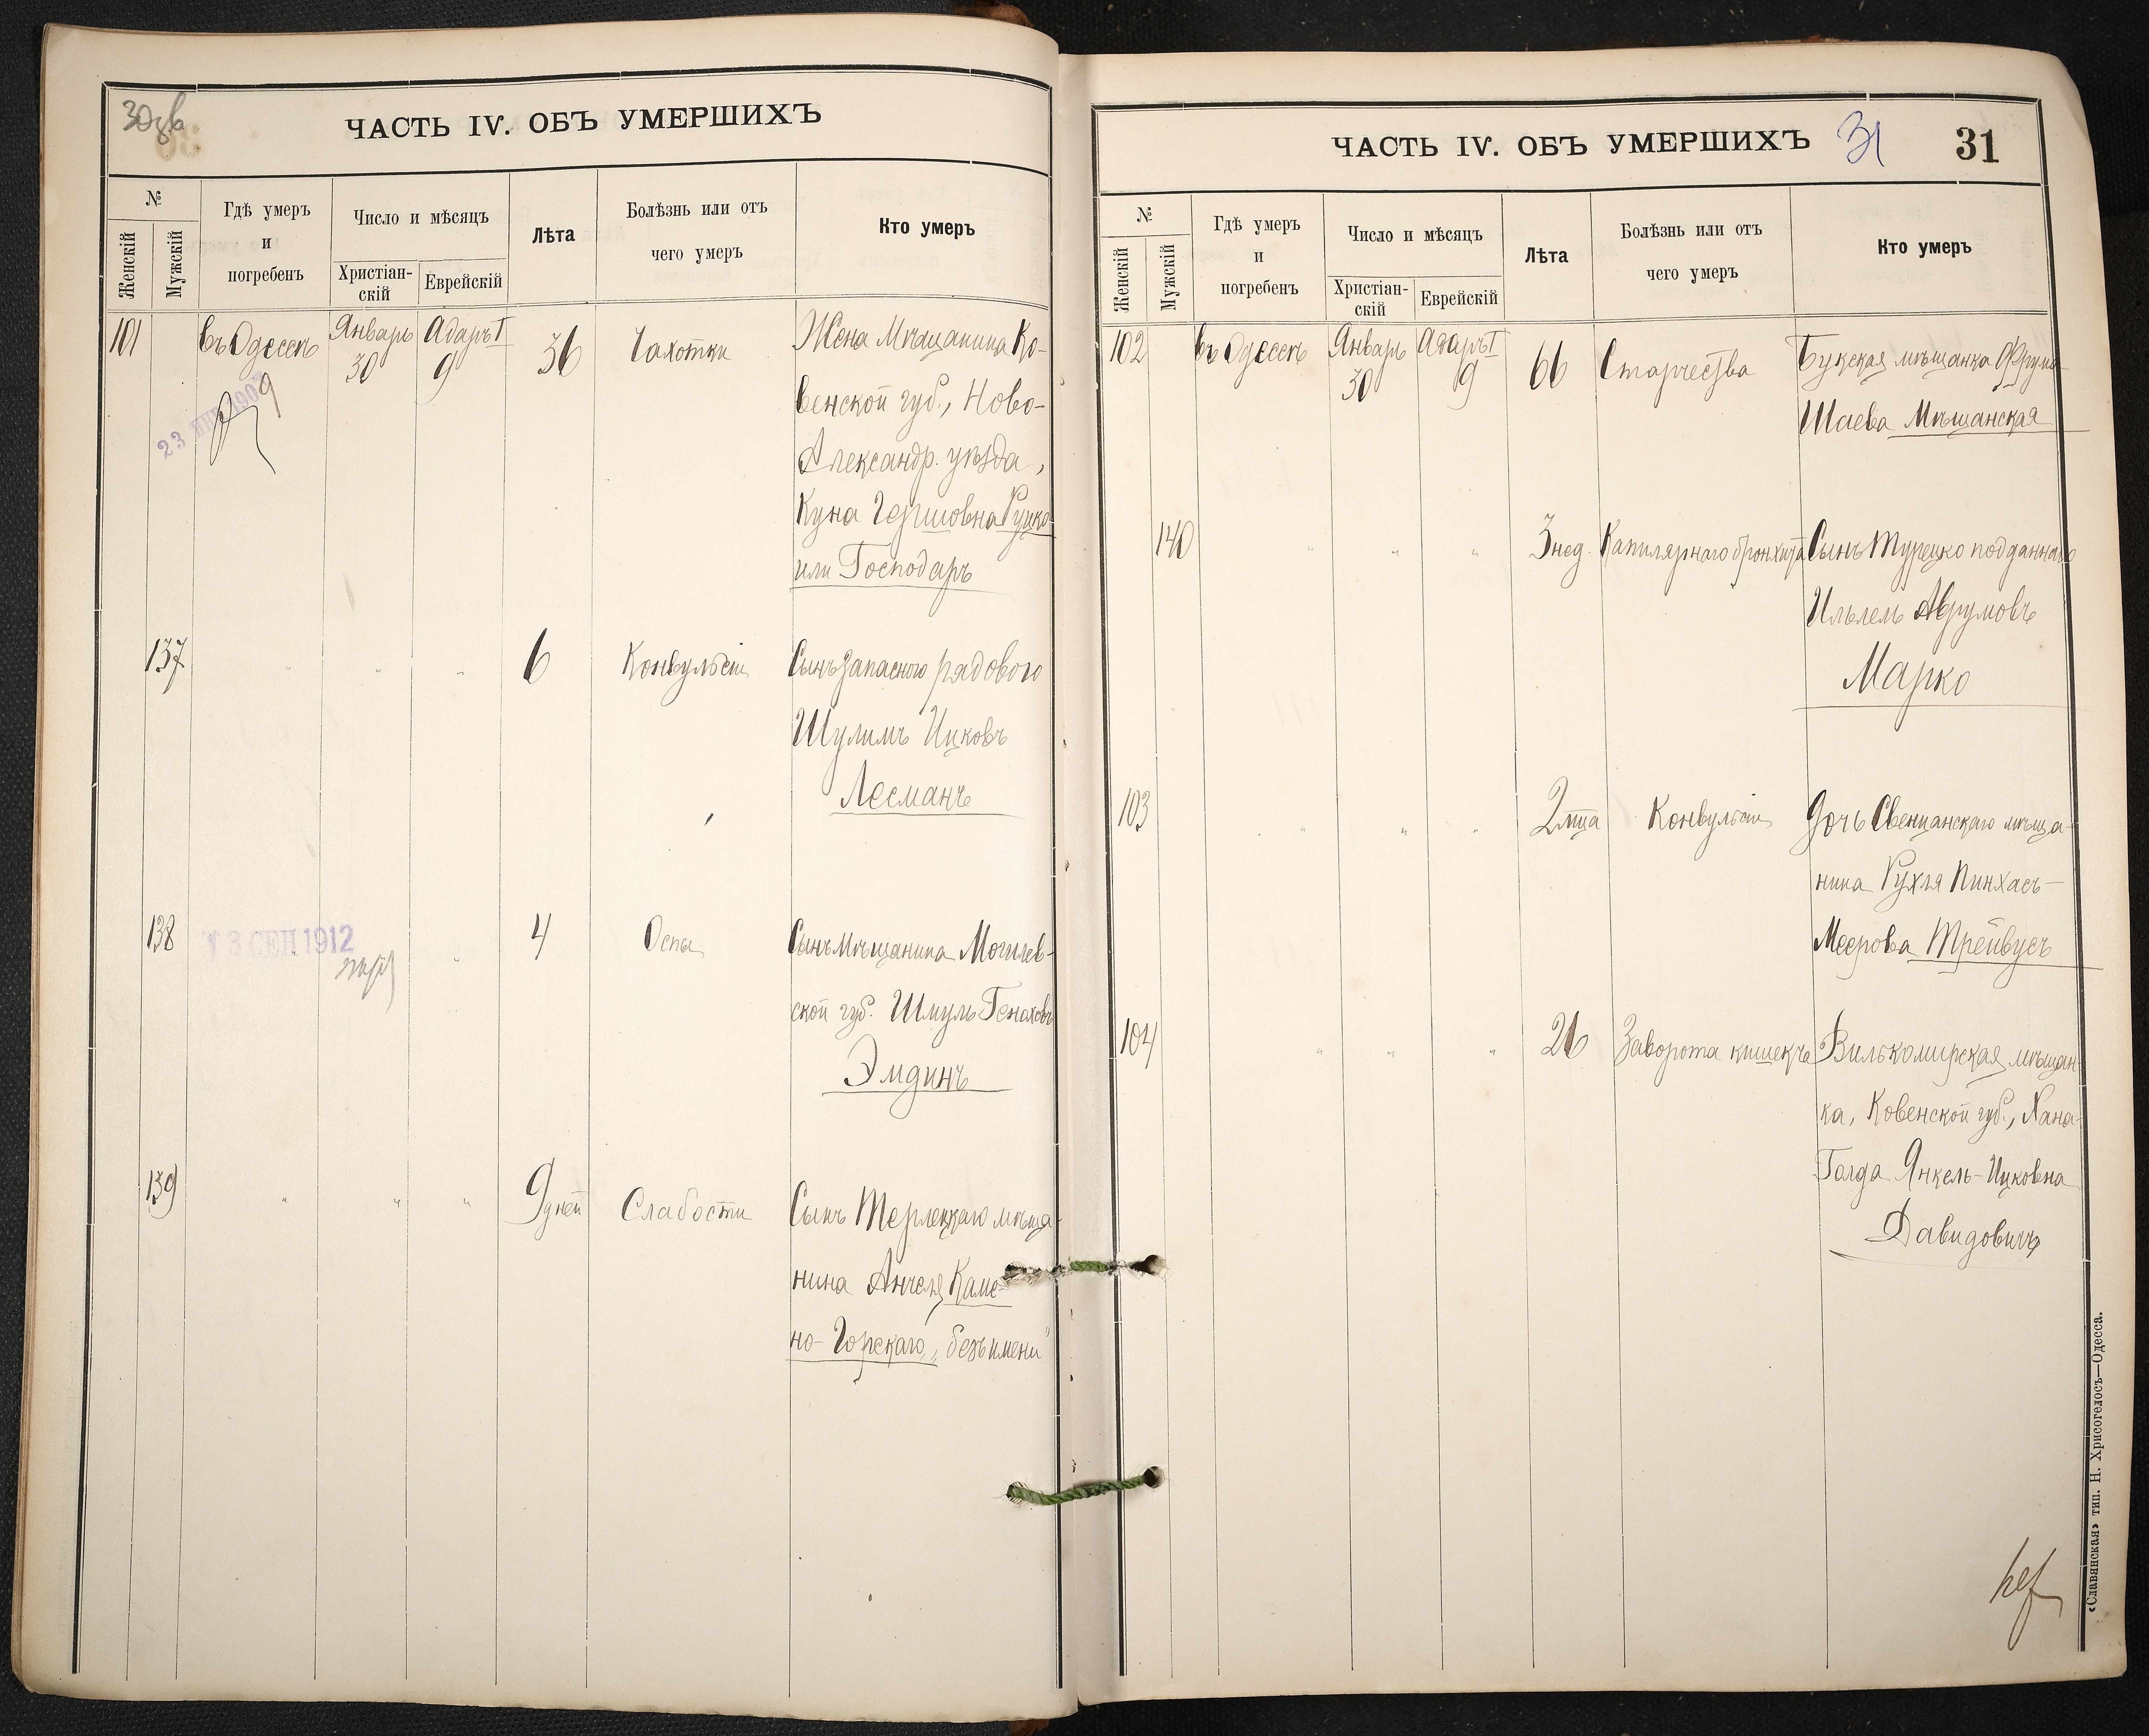 30об
ЧАСТЬ IV. ОБЪ УМЕРШИХЪ
№
Женскій
Мужскій
Гдѣ умеръ
и
погребенъ
Число и мѣсяцъ
Христіан-
скій
Еврейскій
Лѣта
Болѣзнь или отъ
чего умеръ
Кто умеръ
101 въ Одессѣ Январь 30 Адаръ I 9 36 Чахотки Жена Мѣщанина Ко-
венской губ., Ново-
Александр. уѣзда,
Куна Гершовна Руцко
или Господаръ
23 ЯНВ 190
137 " " " 6 Конвульсіи Сынъ запасного рядового
Шулимъ Ицковъ
Лесманъ
138 4 Оспы Сынъ Мѣщанина Могилев-
ской губ. Шмуль Генаховъ
Эмдинъ
3 СЕН 1912
139 " " " 9 дней Слабости Сынъ Терлецкаго мѣща-
нина Анчеля Каме-
но-Горскаго, "безъ имени"
ЧАСТЬ IV. ОБЪ УМЕРШИХЪ
31
31
№
Женскій
Мужскій
Гдѣ умеръ
и
погребенъ
Число и мѣсяцъ
Христіан-
скій
Еврейскій
Лѣта
Болѣзнь или отъ
чего умеръ
Кто умеръ
102 въ Одессѣ Январь 30 Адаръ I 9 66 Старчества Букская мѣщанка Фрума
Шаева Мѣщанская
140 " " " 3 нед. Капилярнаго бронхита Сынъ Турецко подданнаго
Ильель Аврумовъ
Марко
103 " " " 2 мца Конвульсіи Дочь Свенцанскаго мѣща-
нина Рухля Пинхасъ-
Меерова Трейвусъ
104 " " " 26 Заворота кишекъ Вилькомирская мѣщан-
ка, Ковенской губ., Хана-
Голда Янкель-Ицковна
Давидовичъ
«Славянская» тип. Н. Хрисогелосъ—Одесса.